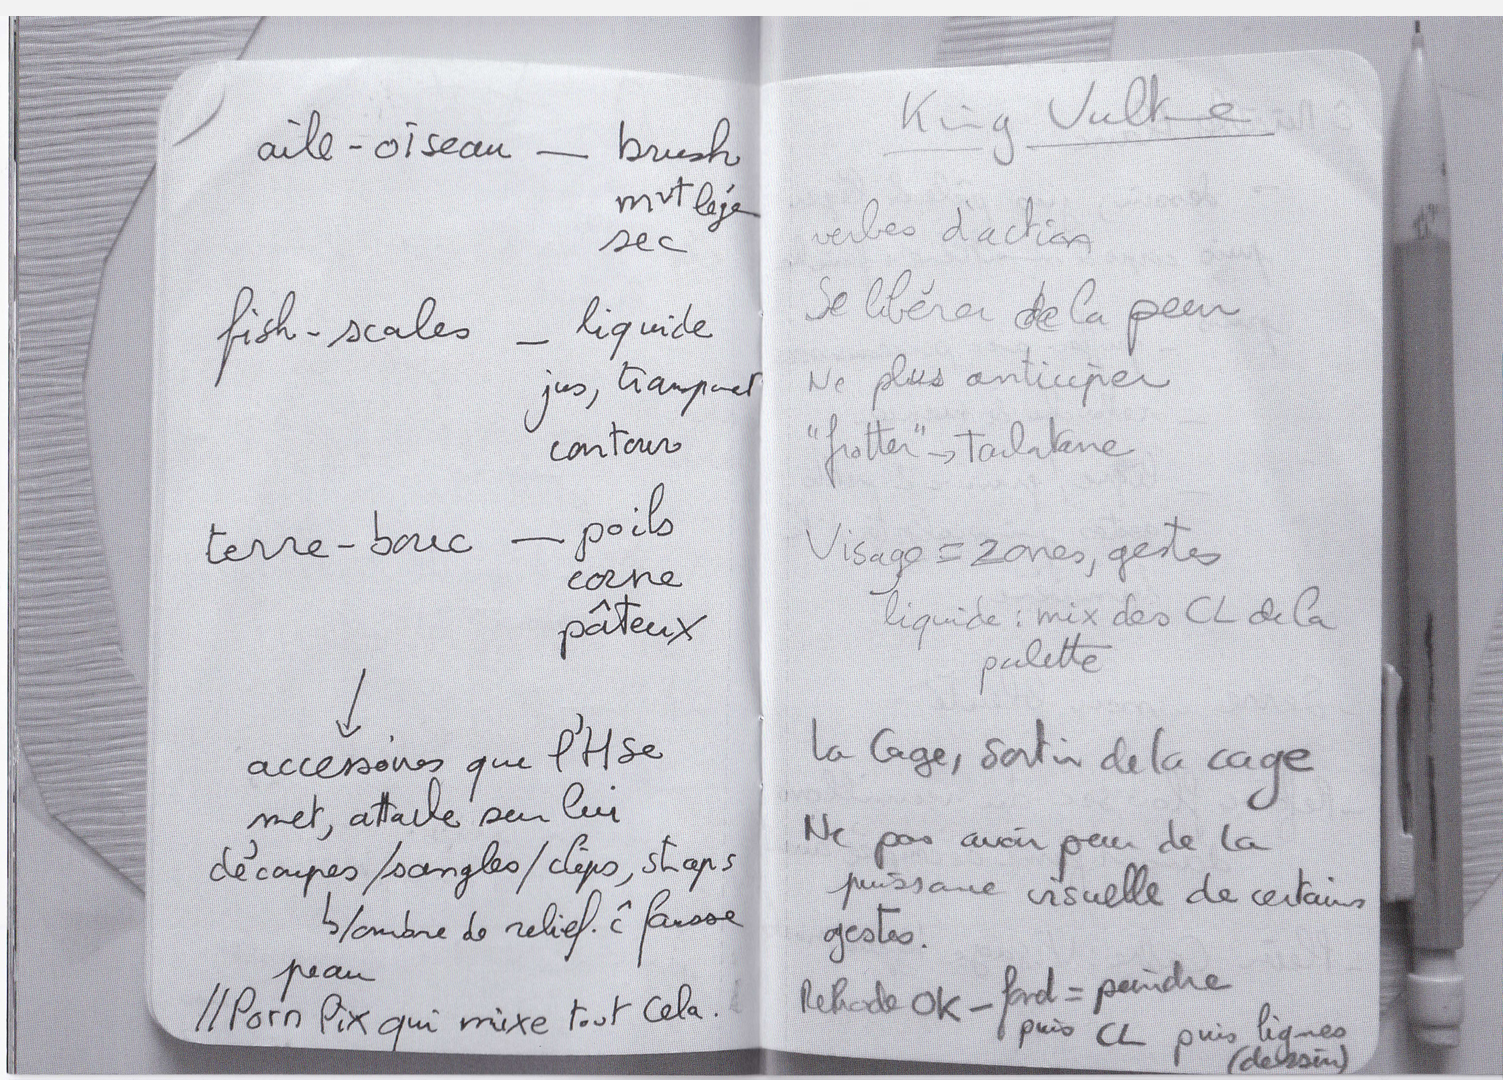 aile-oiseau — brush
mvt léger
sec
fish-scales — liquide
jus, transparent
contour
terre-bouc — poils
corne
pâteux
↓
accessoires que l'Hse
met, attache sur lui
découpes/sangles/clips, straps
↳/ombre de relief. ĉ fausse
peau
//Porn Pix qui mixe tout cela.
King
verbes d'action
Se libérer de la peur
Ne plus anticiper
"frotter" →
Visage = zones, gestes
liquide : mix des CL de la
palette
la Cage, sortir de la cage
Ne pas avoir peur de la
puissance visuelle de certains
gestes.
OK – fond = peindre
puis CL puis lignes
(dessin)